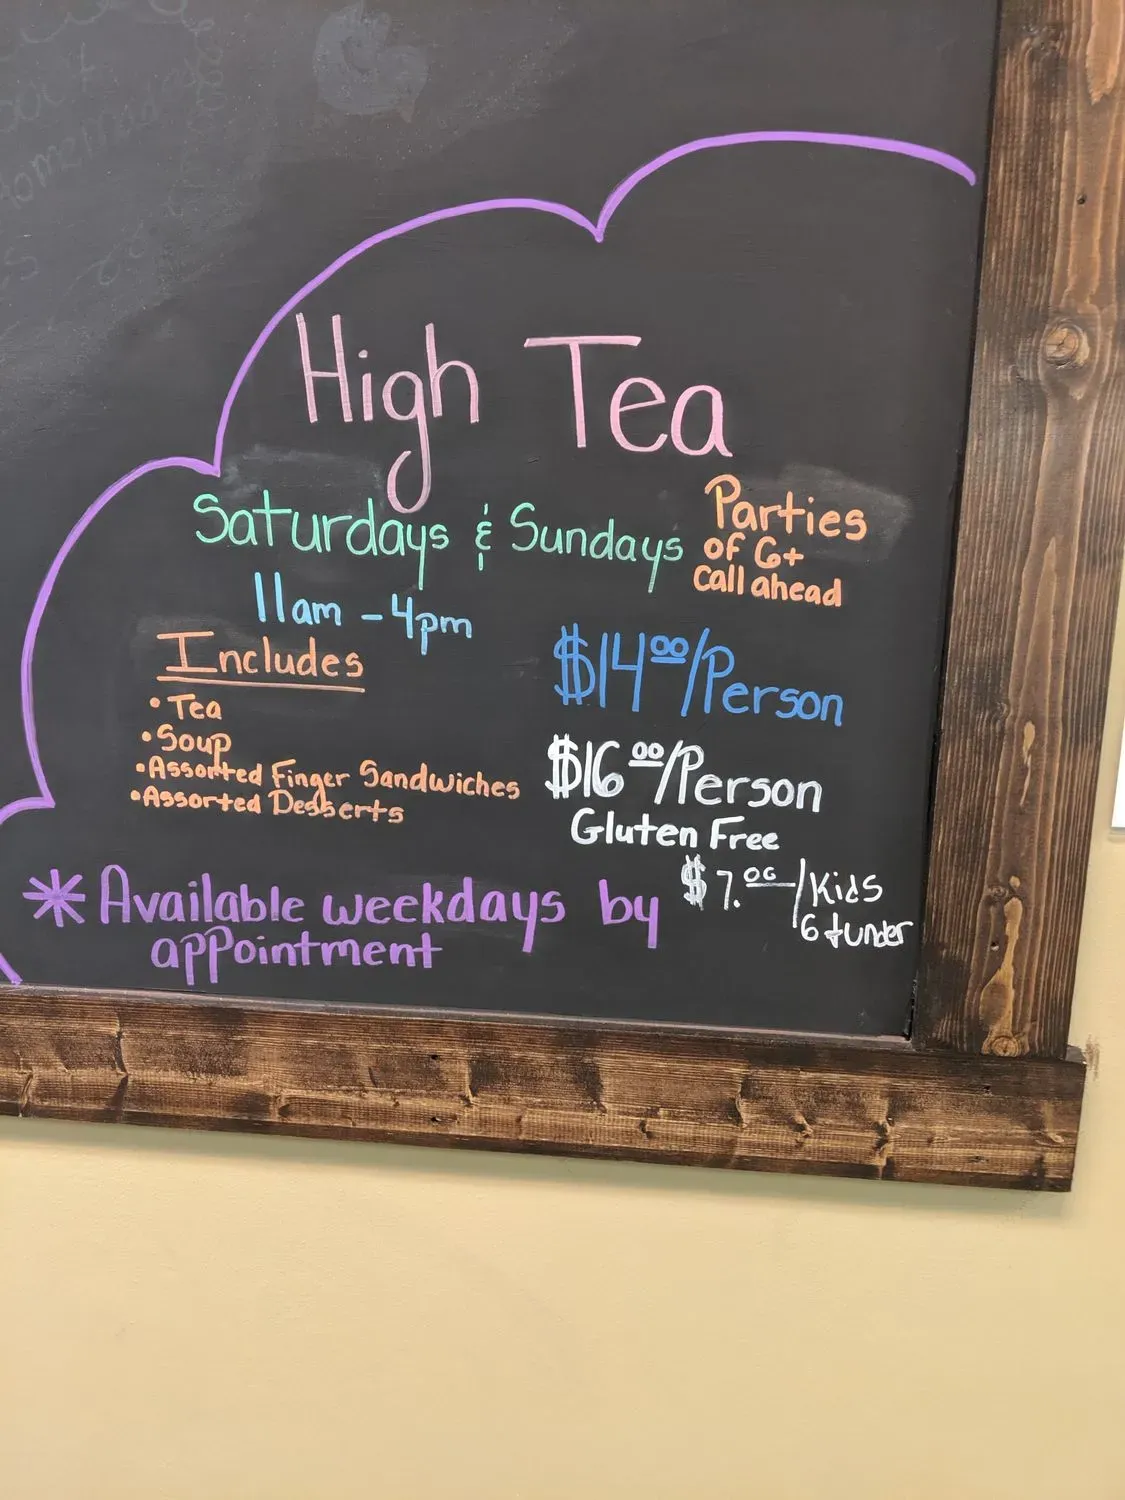 High Tea
Saturdays & Sundays
Parties
of 6+
call ahead
11am - 4pm
Includes
• Tea
• Soup
• Assorted Finger Sandwiches
• Assorted Desserts
$14.00/Person
$16.00/Person
Gluten Free
$7.00/Kids
6 + under
* Available weekdays by
appointment